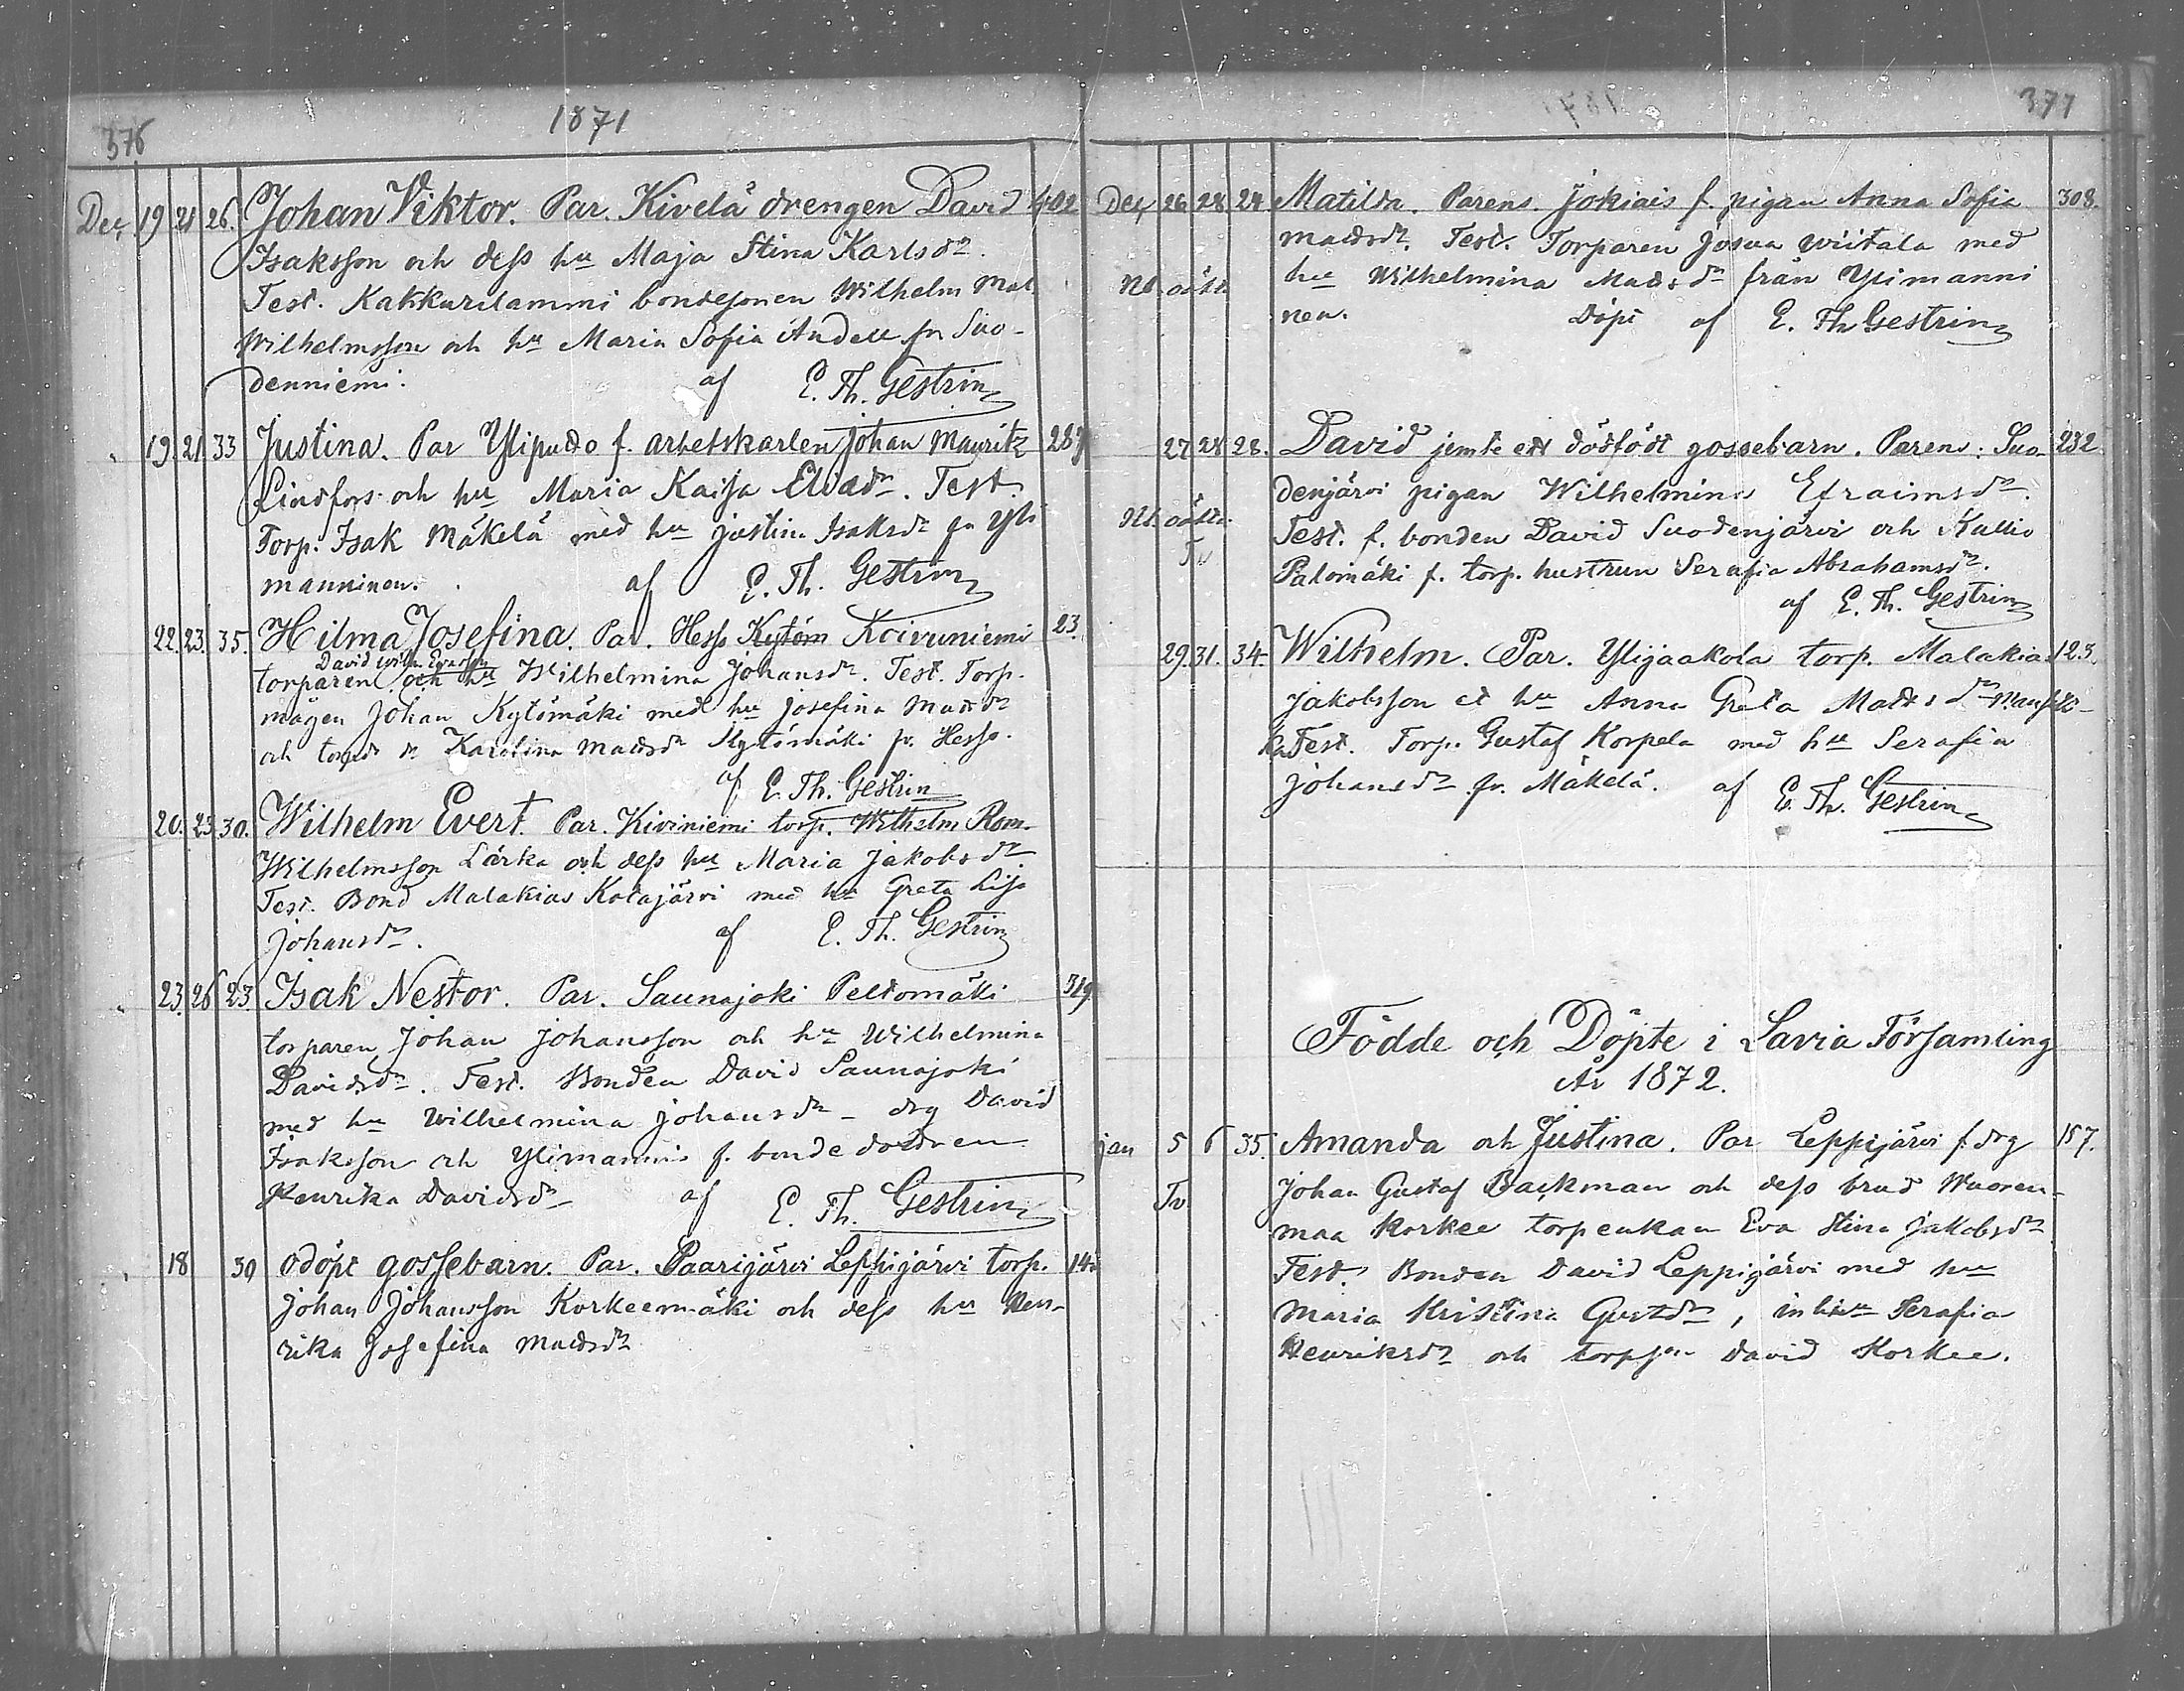 376
1871
Dec. 19 21 26. Johan Viktor. Par. Kivelä drengen David 402
Isaksson och dess hu Maja Stina Karlsdr.
Test. Kakkurilammi bondesonen Wilhelm
Wilhelmsson och hu Maria Sofia Andell fr Suo-
denniemi. af E. Th. Gestrin
19. 21. 33 Justina. Par Ylipudo f. arbetskarlen Johan Mauritz 287
Lindfors och hu Maria Kaisa Eliaedr. Test.
Torp. Isak Mäkelä med hu Justina Isaksdr fr Yli
manninen. af E. Th. Gestrin
22. 23. 35. Hilma Josefina. Par. Hess Kytöm Koivuniemi 23.
David Wilh.
torparen och hu Wilhelmina Johansdr. Test. Torp.
mågen Johan Kytömäki med hu Josefina Mattsdr
och Karolina Mattsdr Kytömäki fr. Hess.
af E. Th. Gestrin
20. 23. 30. Wilhelm Evert. Par. Kiviniemi torp. Wilhelm Rom.
Wilhelmsson Lärka och dess hu Maria Jakobsdr.
Test. Bond Malakias Kotajärvi med hu Greta Lisa
Johansdr. af E. Th. Gestrin
23. 26 23. Isak Nestor. Par. Saunajoki Peltomäki 319
torparen Johan Johansson och hu Wilhelmina
Davidsdr. Test. Bonden David Saunajoki
med hu Wilhelmina Johansdr - drg David
Isaksson och Ylimannis f. bonde dottren
Henrika Davidsdr af E. Th. Gestrin
18 30 odöpt gossebarn. Par. Paarijärvi Leppijärvi torp. 14
Johan Johansson Korkeemäki och dess hu Hen-
rika Josefina Mattsdr
377
Dec. 26 28 24 Matilda. Parens. Jokiais f. pigan Anna Sofia 308.
Mattsdr. Test. Torparen Josua Wiitala med
Nb. oäkta hu Wilhelmina Mattsdr från Ylimanni
nen. Döpt af E. Th Gestrin
27 28 28. David jemte ett dödfödt gossebarn. Parens: Suo- 232
denjärvi pigan Wilhelmina Efraimsdr.
Nb. oäkta Test. f. bonden David Suodenjärvi och Kullio
Tv Palomäki f. torp. hustrun Serafia Abrahamsdr.
af E. Th. Gestrin
29. 31. 34. Wilhelm. Par. Ylijaakola torp. Malakias 123.
Jakobsson et hu Anna Greta Mattsdr Mansik-
ka Test. Torp. Gustaf Korpela med hu Serafia
Johansdr fr. Mäkelä. af E. Th. Gestrin
Födde och Döpte i Lavia Församling
År 1872.
jan 5 6 35. Amanda och Justina. Par Leppijärvi f. drg 157.
Tv Johan Gustaf Backman och dess brud Wuoren-
maa Korkee torpenkan Eva Stina Jakobsdr
Test. Bonden David Leppijärvi med hu
Maria Kristina Gustdr, inh Serafia
Henriksdr och torps David Korkee.